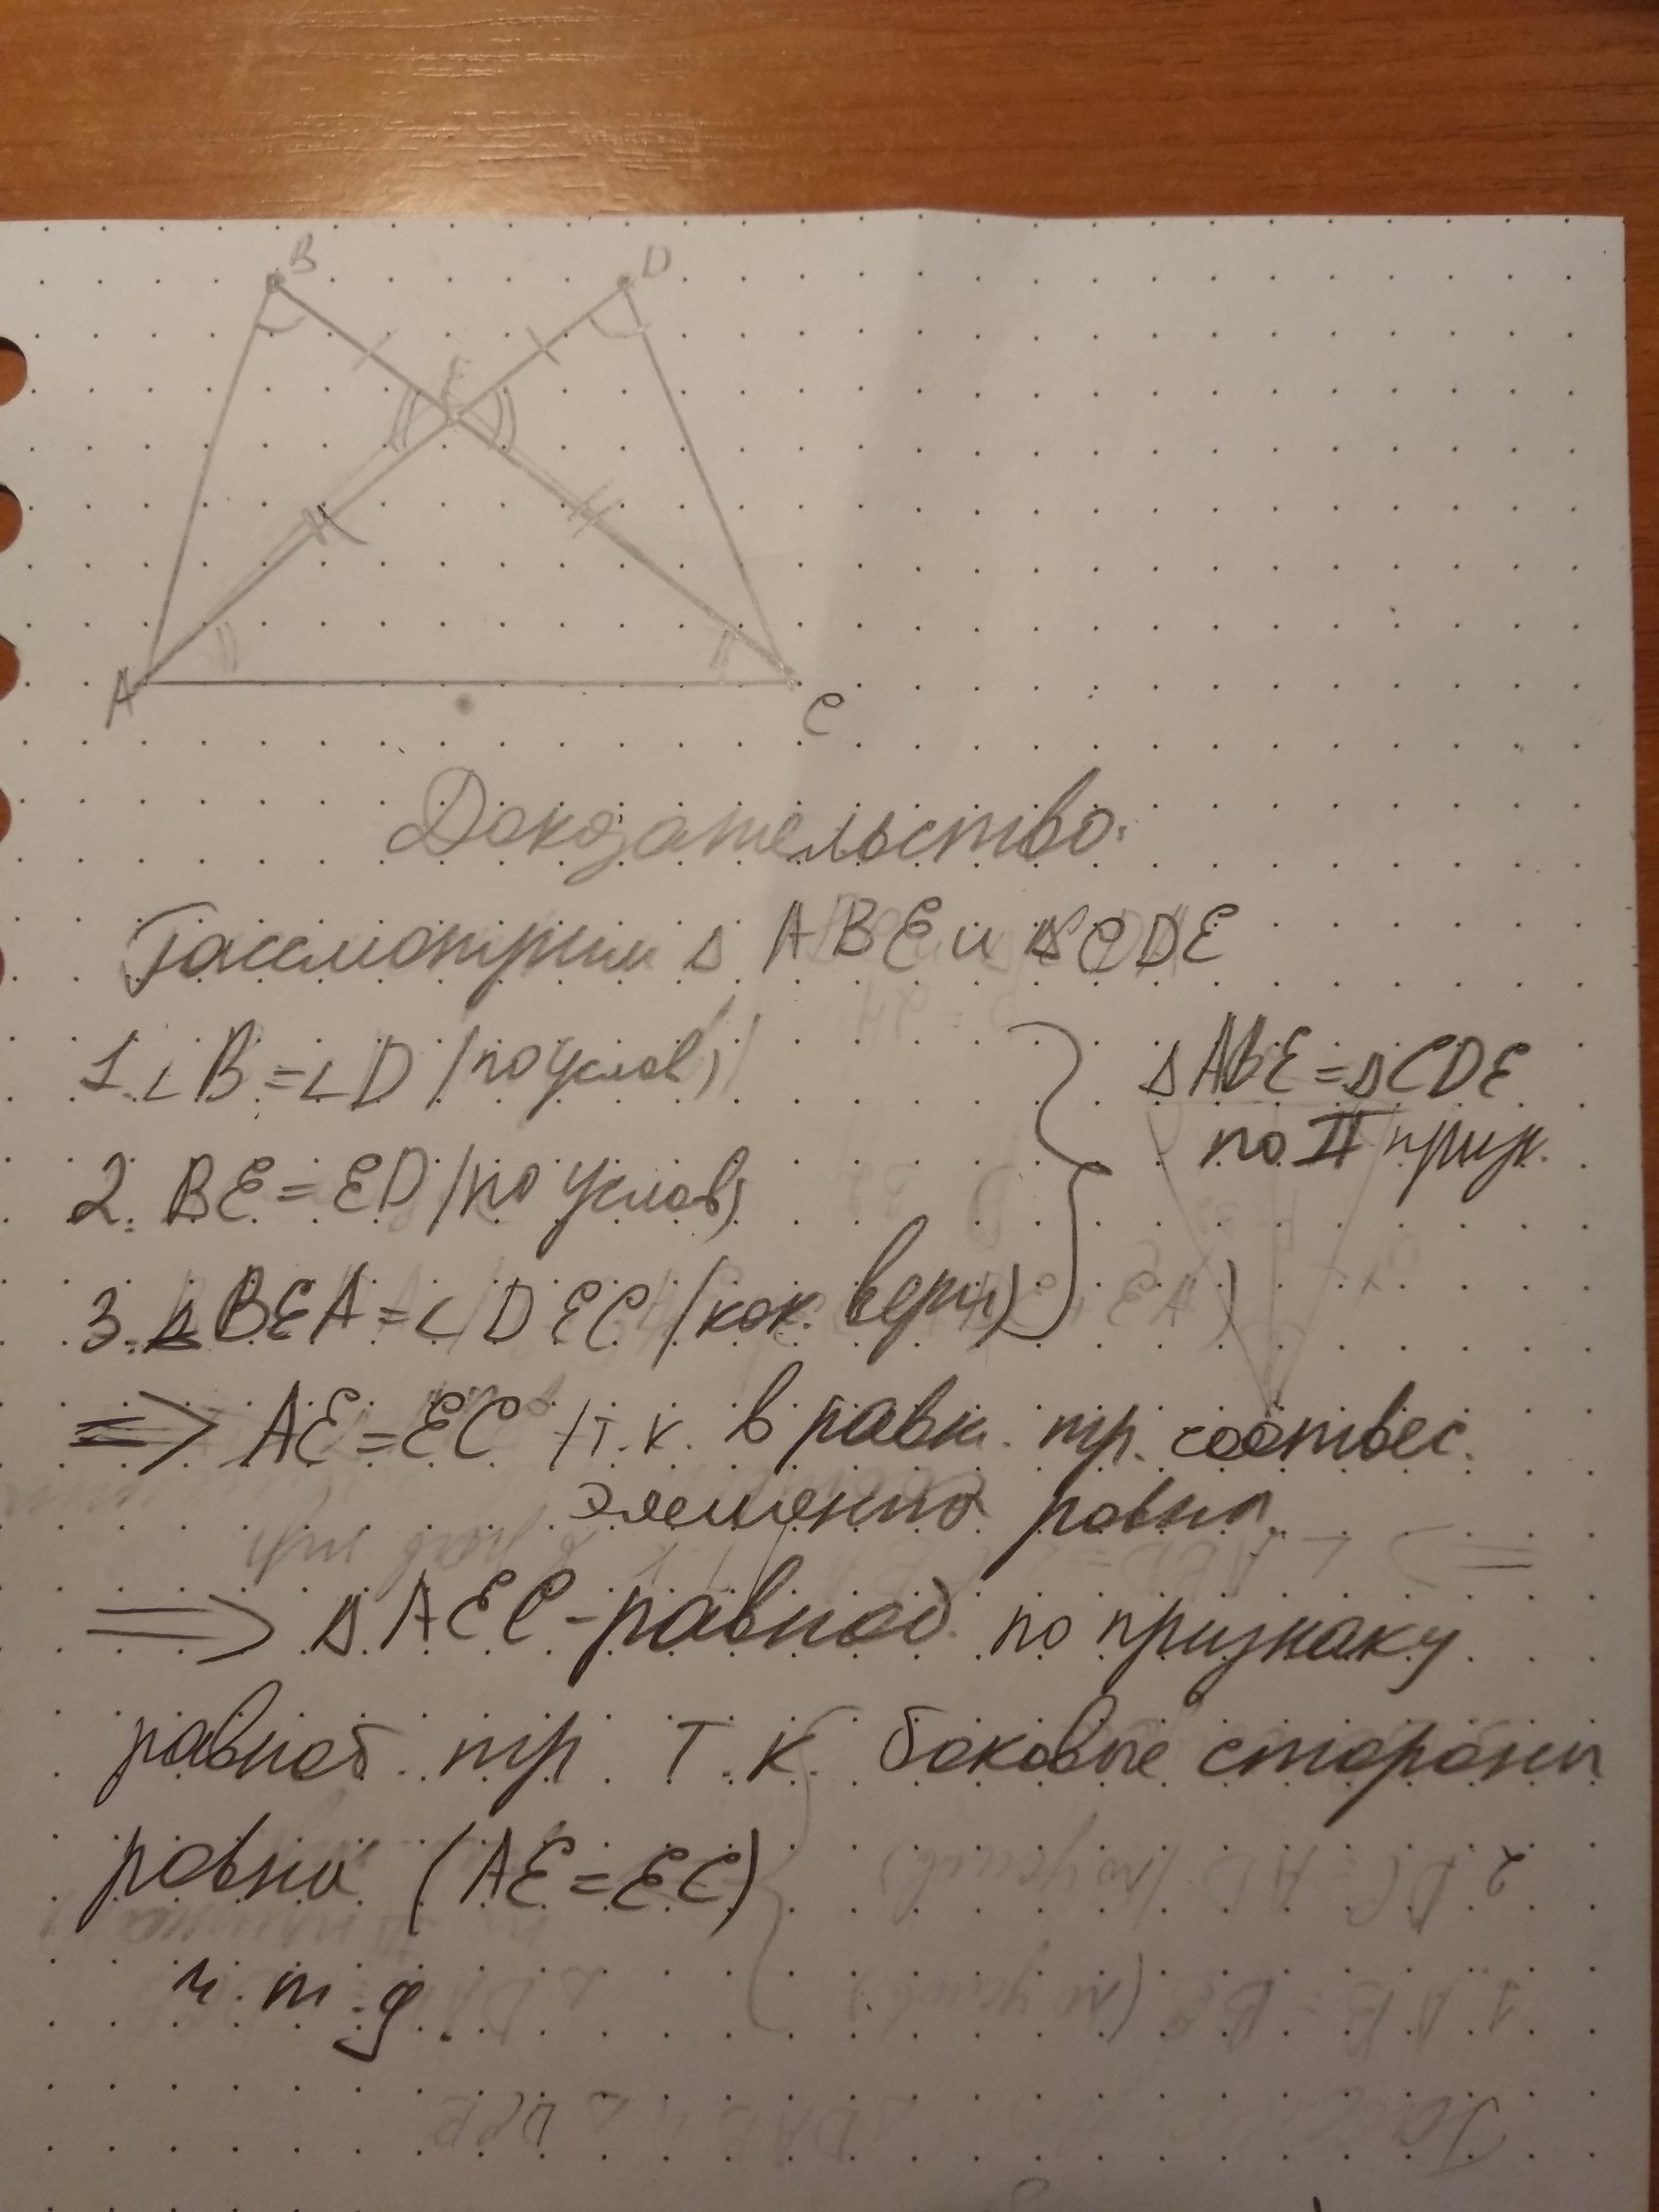 B D
E
A C
Доказательство:
Рассмотрим Δ ABE и ΔCDE
1. ∠B=∠D (по услов)
ΔABE=ΔCDE
по II призн.
2. BE=ED (по услов)
3. ΔBEA=∠DEC (как верт)
=> AE=EC (т.к. в равн. тр. соответс.
элементы равны
=> ΔAEC-равноб. по признаку
равноб. тр. т.к. боковые стороны
равны (AE=EC)
ч.т.д.